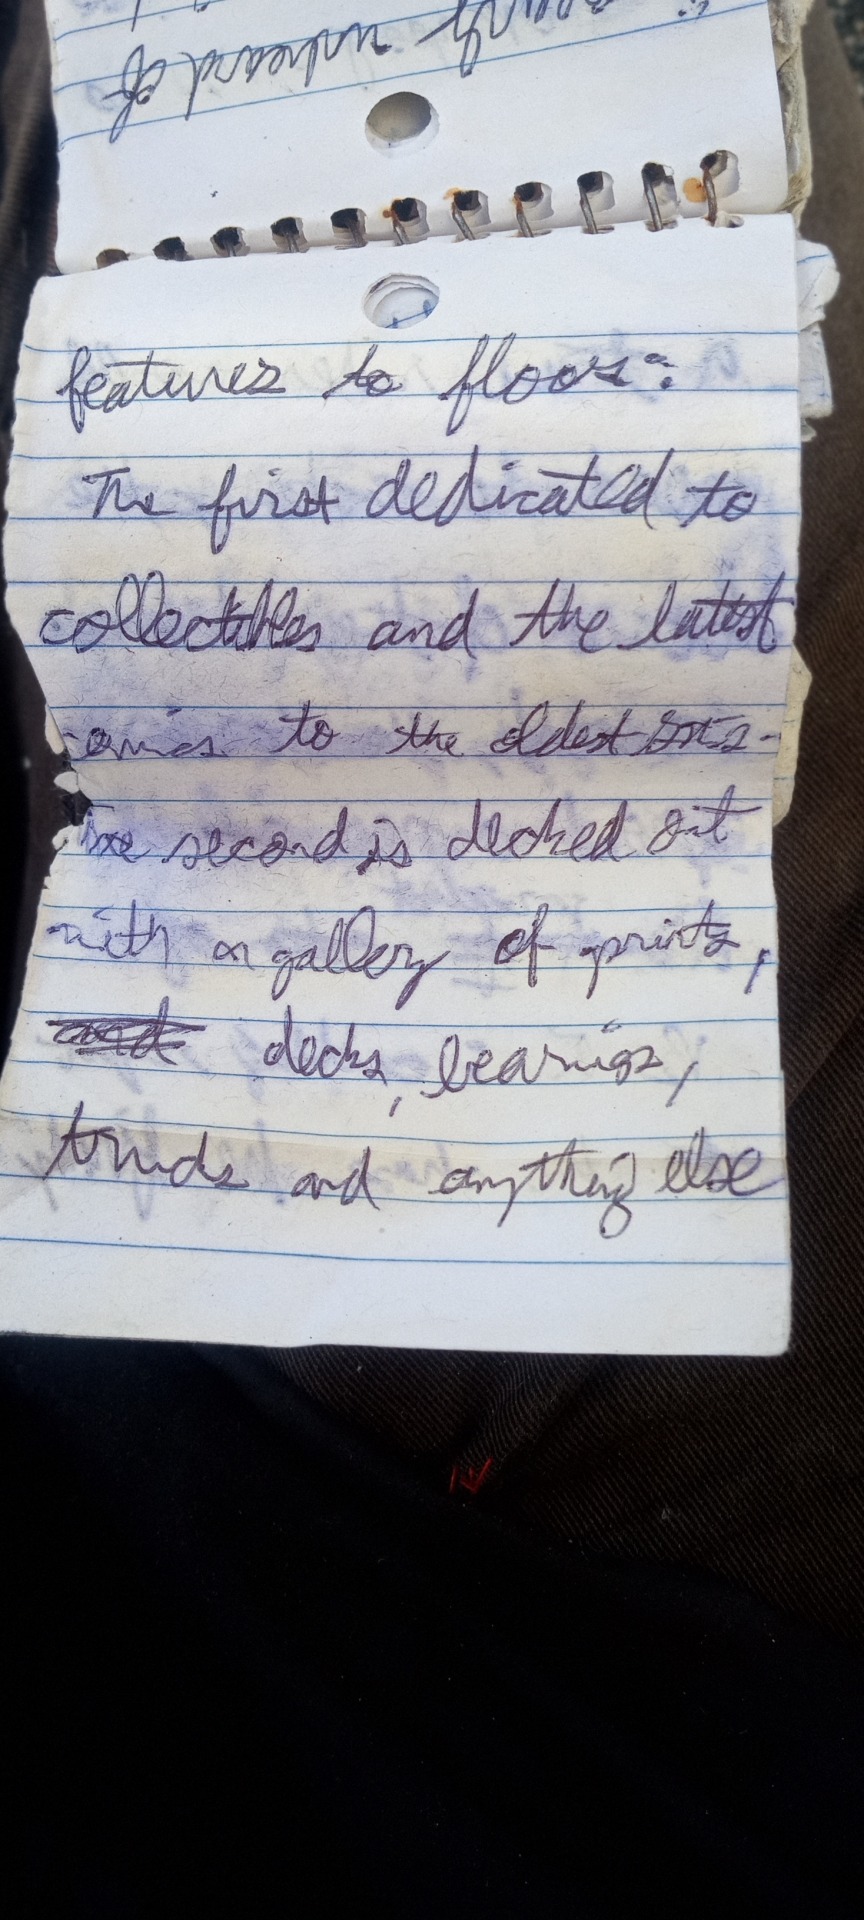 unheard of
features to floors:
The first dedicated to
collectables and the latest
comics to the oldest
The second is decked out
with a gallery of prints,
decks, bearings,
trucks and anything else